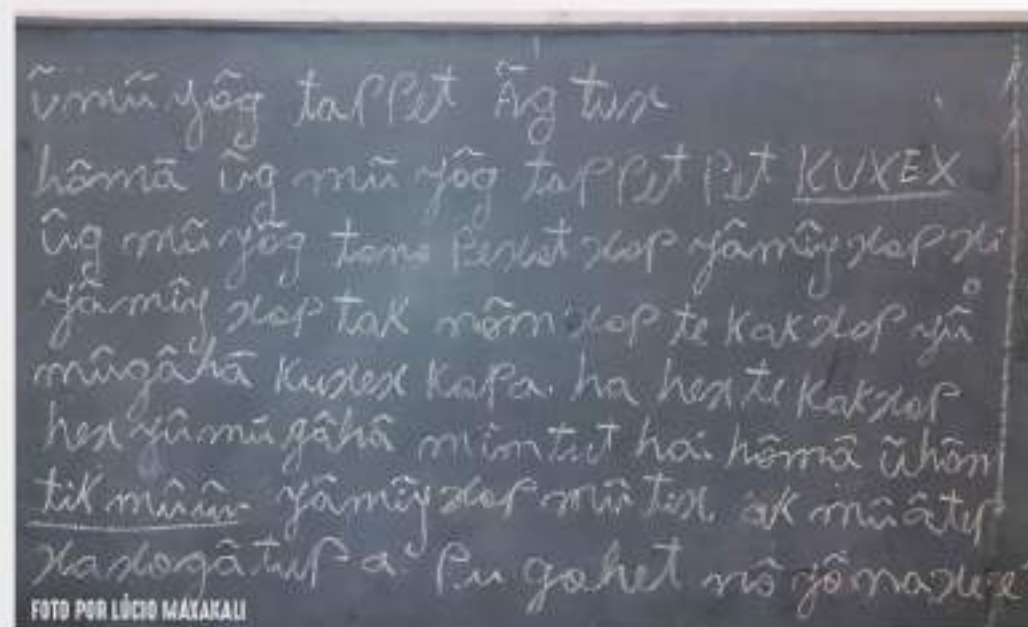 ũmũ yõg tappet Ãg tux
hãmã ũg mũ yõg tappet pet KUXEX
ũg mũ yõg xop yãmîy xop xi
yãmîy xop tak nõm xop te Kakxop yũ
mũgãhã Kuxex Kapa. ha hex te Kakxop
hex yũmũgãhã mîmtut hai. hõmã
tik mũ'ũn yãmîy xop mũ tix. ãk mũ ãtup
xaxogã tup a pu gahet nõ
FOTO POR LÚCIO MAXAKALI